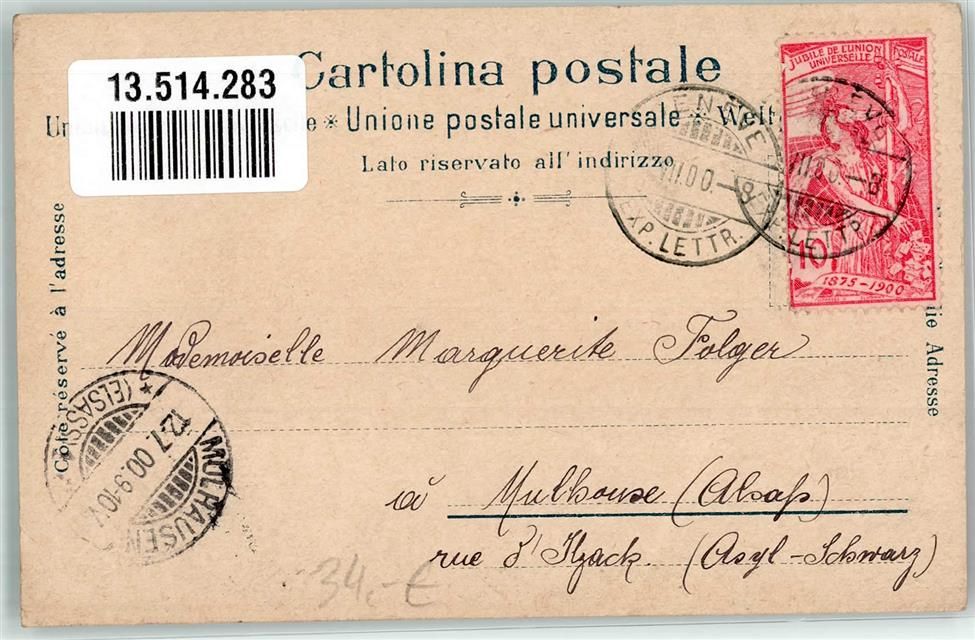 13.514.283
Cartolina postale
Unione postale universale * Welt
Lato riservato all' indirizzo
JUBILÉ DE L'UNION POSTALE
UNIVERSELLE
10
1875-1900
EXP. LETTR.
VII.00.-8
Côté réservé à l'adresse
Adresse
Mademoiselle Marguerite Folger
MÜLHAUSEN
(ELSASS)
12.7.00.9-10V.
à Mulhouse (Alsaß)
rue d'Ilzach. (Asyl-Schwarz)
34,-€